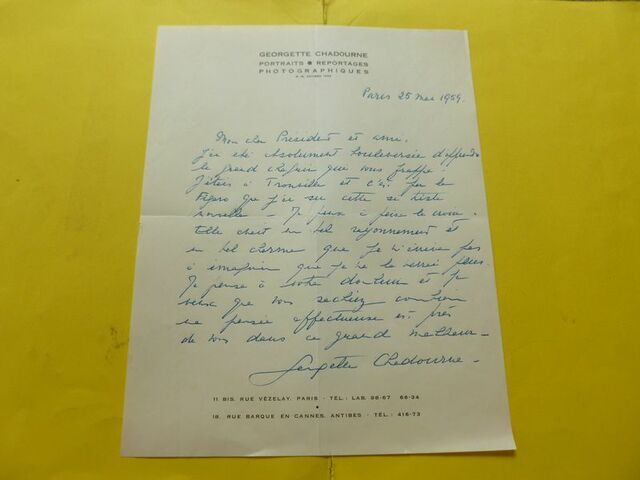 GEORGETTE CHADOURNE
PORTRAITS ● REPORTAGES
PHOTOGRAPHIQUES
Paris 25 mai 1959.
Mon cher Président et ami.
J'ai été absolument bouleversée d'apprendre
le grand chagrin qui vous frappe!
J'étais à Trouville et c'est par le
Figaro que j'ai su cette si triste
nouvelle - Je puis à peine le croire.
Elle avait un tel rayonnement et
un tel charme que je n'arrive pas
à imaginer que je ne la verrai plus.
Je pense à votre douleur et je
veux que vous sachiez combien
ma pensée affectueuse est près
de vous dans ce grand malheur -
Georgette Chadourne -
11 BIS, RUE VÉZELAY, PARIS - TÉL.: LAB. 98-67 66-34
●
18, RUE BARQUE EN CANNES, ANTIBES - TÉL.: 416-73